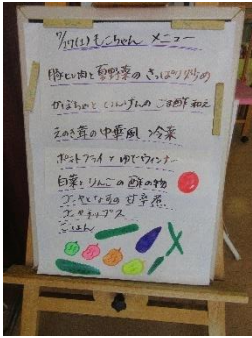 7/17(土)もこちゃん メニュー
豚肉と夏野菜のさっぱり炒め
かぼちゃといんげんのごま酢和え
えのき茸の中華風 冷菜
ポテトフライ ゆでウィンナー
白菜とりんごの酢の物
の甘辛煮
ごはん